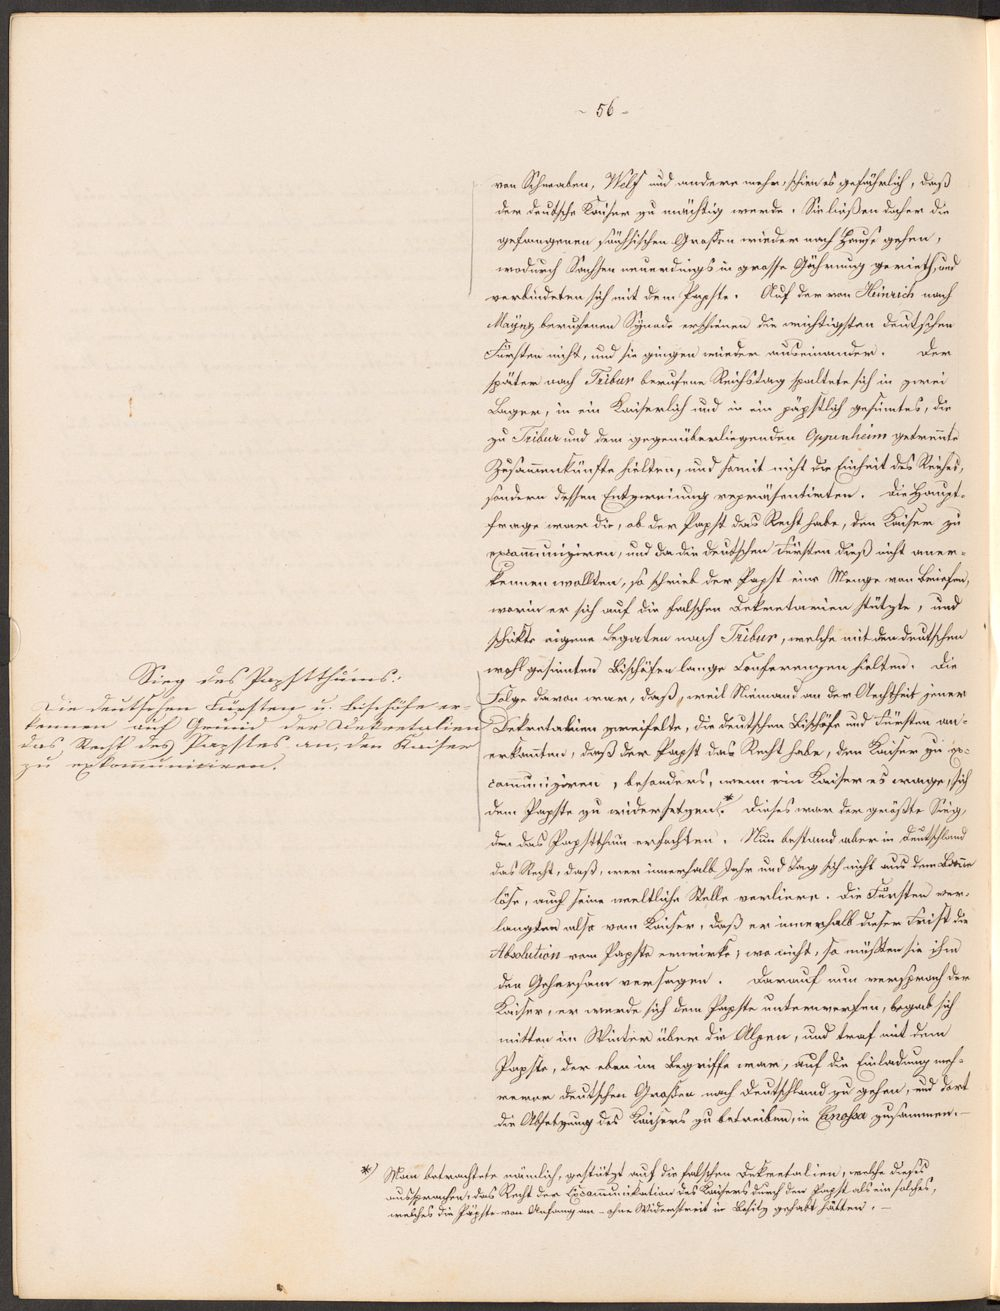 - 56 -
von Schwaben, Welf und andere mehr, schien es gefährlich, daß
der deutsche Kaiser zu mächtig werde. Sie ließen daher die
gefangenen sächsischen Großen wieder nach Hause gehen,
wodurch Sachsen neuerdings in grosse Gährung gerieth, und
verbündeten sich mit dem Papste. Auf der von Heinrich nach
Maynz berufenen Synode erschienen die wichtigsten deutschen
Fürsten nicht, und sie gingen wieder auseinander. Der
später nach Tribur berufene Reichstag spaltete sich in zwei
Lager, in ein Kaiserlich und in ein päpstlich gesinntes, die
zu Tribur und dem gegenüberliegenden Oppenheim getrennte
Zusammenkünfte hielten, und somit nicht die Einheit des Reiches,
sondern dessen Entzweiung repräsentirten. Die Haupt-
frage war die, ob der Papst das Recht habe, den Kaiser zu
excommuniziren, und da die deutschen Fürsten dieß nicht aner-
kennen wollten, so schrieb der Papst eine Menge von Briefen,
worin er sich auf die falschen Dekretarien stützte, und
schickte eigene Legaten nach Tribur, welche mit den deutschen
wohl gesinnten Bischöfen lange Conferenzen hielten. Die
Folge davon war, daß, weil Niemand an der Aechtheit jener
Dekretalien zweifelte, die deutschen Bischöfe und Fürsten an-
erkannten, daß der Papst das Recht habe, den Kaiser zu ex-
communiziren, besonders, wenn ein Kaiser es wage, sich
dem Papste zu widersetzen.* Dieses war der größte Sieg,
den das Papstthum erfochten. Nun bestand aber in Deutschland
das Recht, daß, wer innerhalb Jahr und Tag sich nicht aus dem Banne
löse, auch seine weltliche Stelle verliere. Die Fürsten ver-
langten also vom Kaiser, daß er innerhalb dieser Frist die
Absolution vom Papste erwirke; wo nicht, so müßten sie ihm
den Gehorsam versagen. Darauf nun versprach der
Kaiser, er werde sich dem Papste unterwerfen, begab sich
mitten im Winter über die Alpen, und traf mit dem
Papste, der eben im Begriffe war, auf die Einladung meh-
rerer deutschen Großen nach Deutschland zu gehen, und dort
die Absetzung des Kaisers zu betreiben, in Canossa zusammen. -
Sieg des Papstthums.
Die deutschen Fürsten u. Bischöfe er-
kennen auf Grund der Dekretalien
das Recht des Papstes an, den Kaiser
zu exkommuniciren.
*) Man betrachtete nämlich, gestützt auf die falschen Dekretalien, welche dieses
aussprachen, das Recht der Excommunikation des Kaisers durch den Papst als ein solches,
welches die Päpste von Anfang an - ohne Widerstreit in Besitz gehabt hätten. -